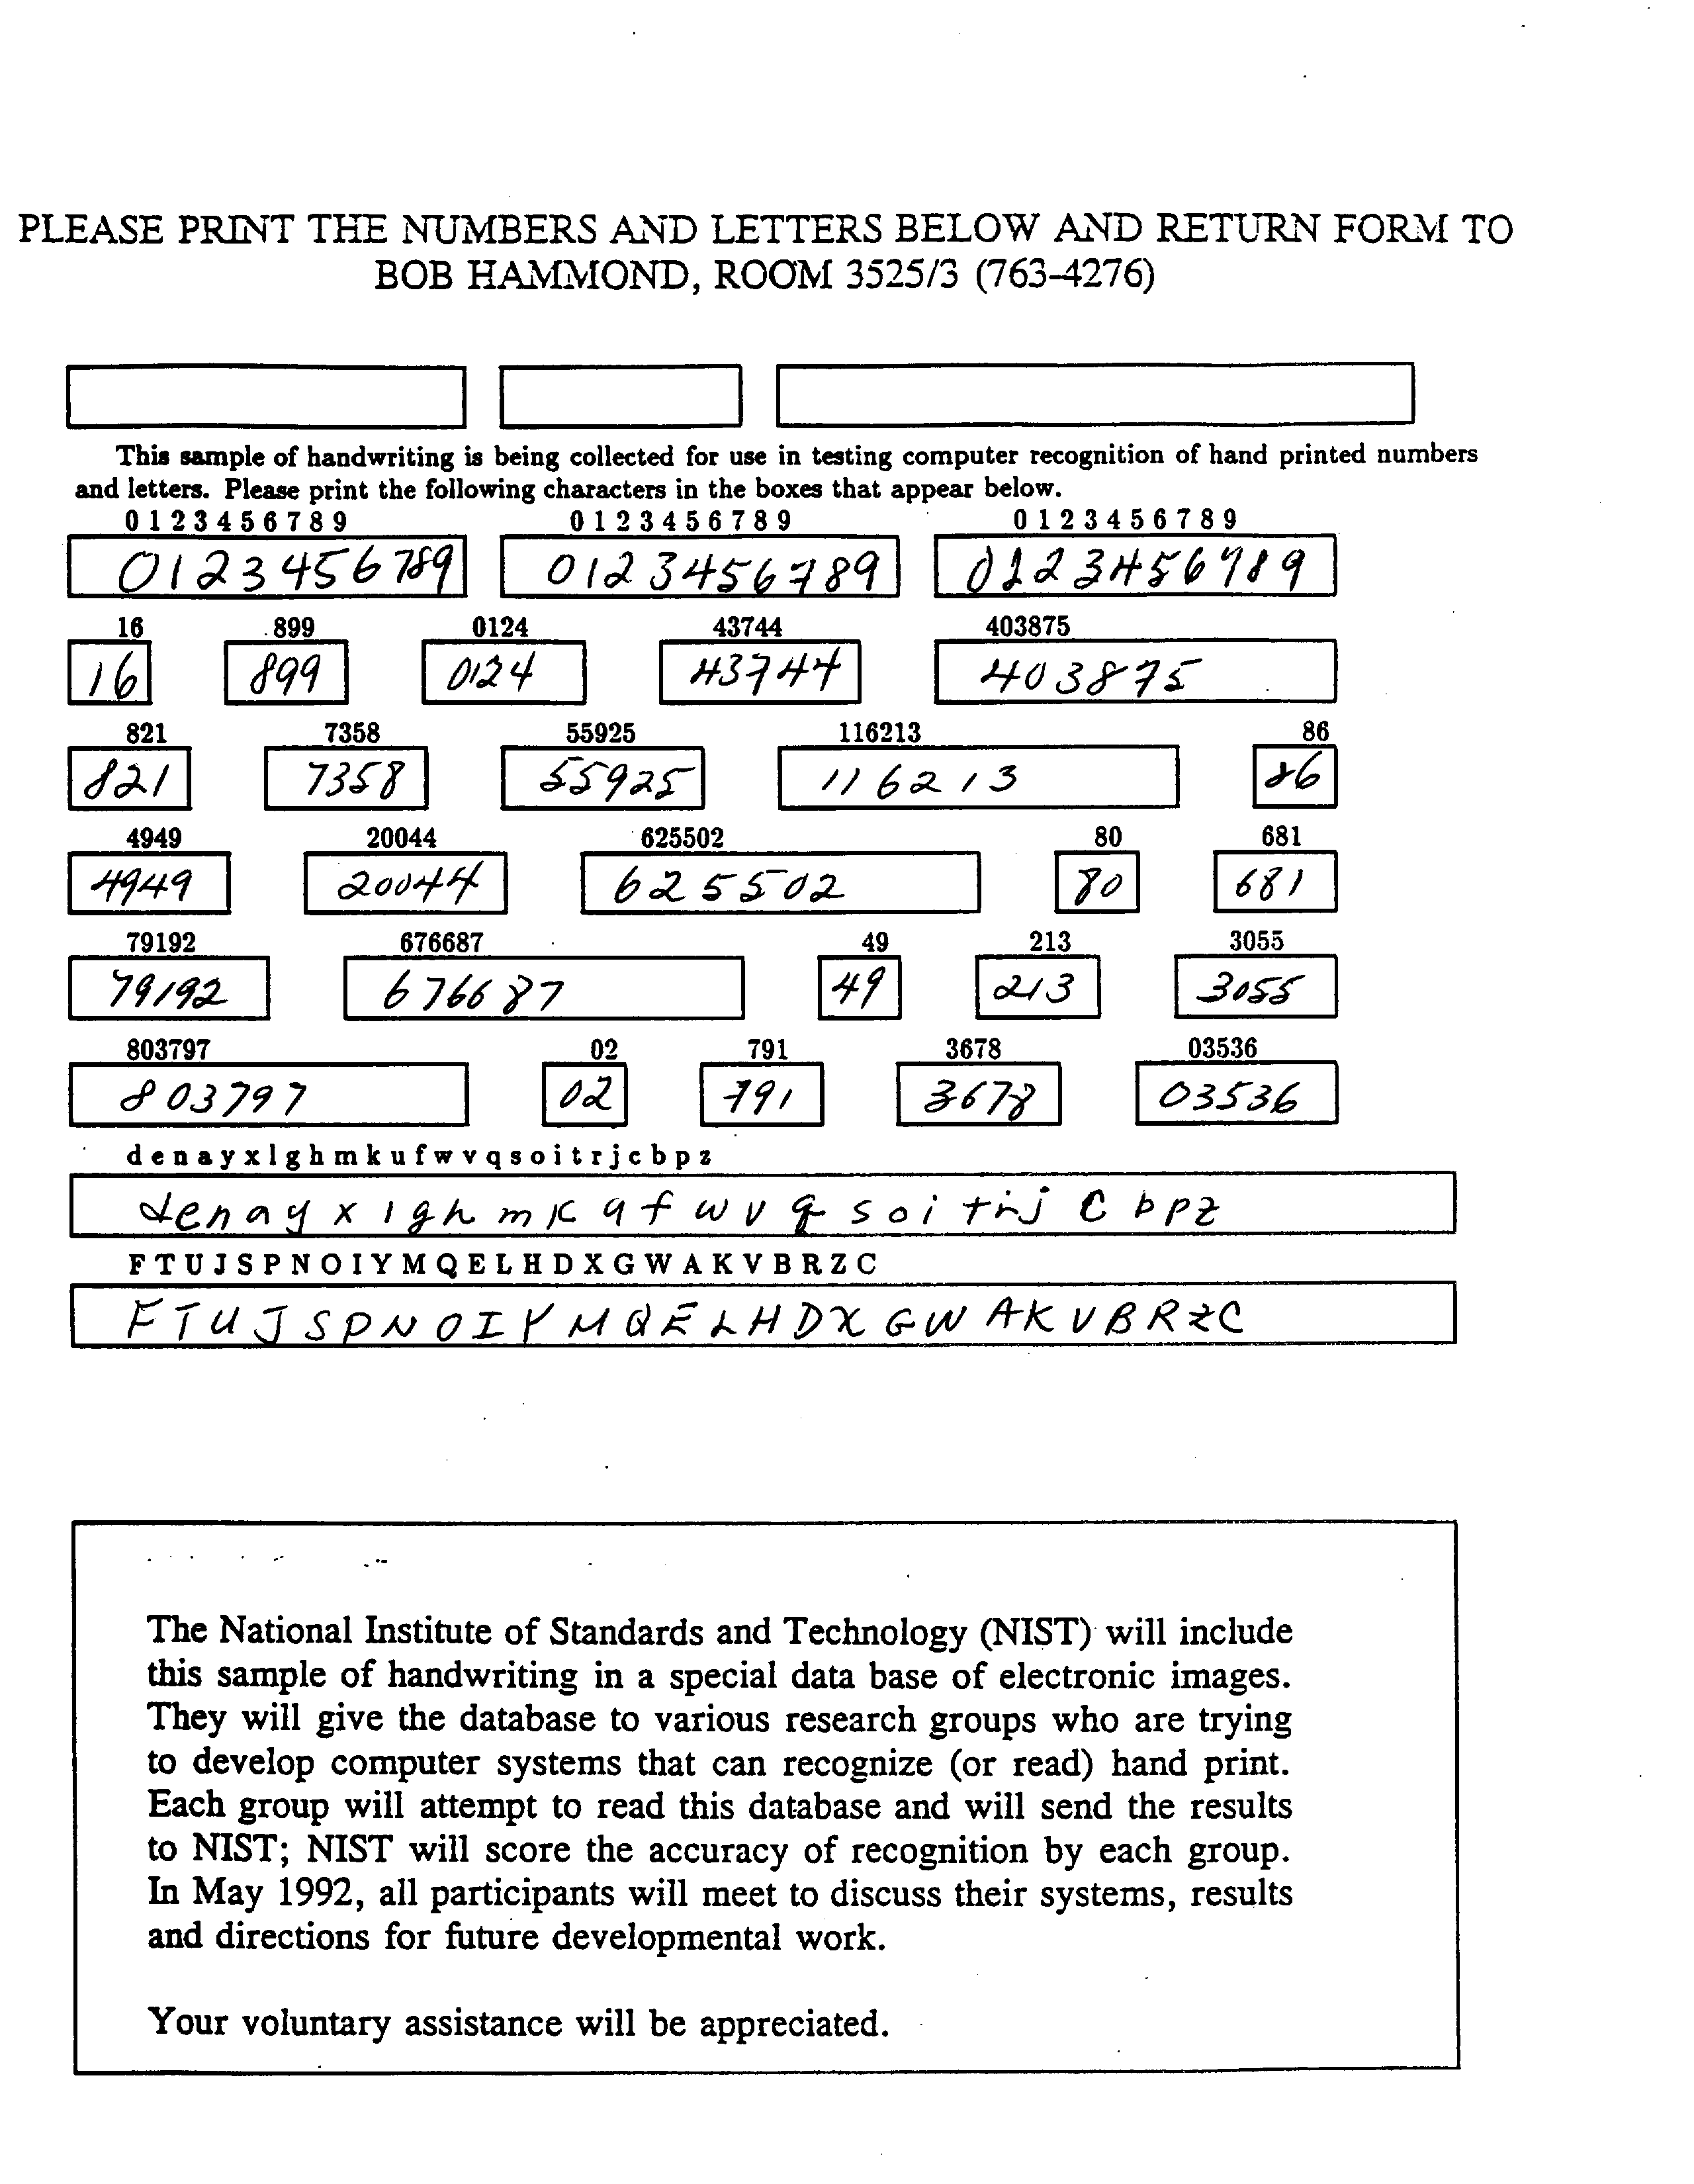 PLEASE PRINT THE NUMBERS AND LETTERS BELOW AND RETURN FORM TO
BOB HAMMOND, ROOM 3525/3 (763-4276)
This sample of handwriting is being collected for use in testing computer recognition of hand printed numbers
and letters. Please print the following characters in the boxes that appear below.
0 1 2 3 4 5 6 7 8 9 0 1 2 3 4 5 6 7 8 9 0 1 2 3 4 5 6 7 8 9
0123456789 0123456789 0123456789
16 899 0124 43744 403875
16 899 0124 43744 403875
821 7358 55925 116213 86
821 7358 55925 116213 86
4949 20044 625502 80 681
4949 20044 625502 80 681
79192 676687 49 213 3055
79192 676687 49 213 3055
803797 02 791 3678 03536
803797 02 791 3678 03536
d e n a y x l g h m k u f w v q s o i t r j c b p z
d e n a y x l g h m k q f w v q s o i t r j c b p z
F T U J S P N O I Y M Q E L H D X G W A K V B R Z C
F T U J S P N O I Y M Q E L H D X G W A K V B R Z C
The National Institute of Standards and Technology (NIST) will include
this sample of handwriting in a special data base of electronic images.
They will give the database to various research groups who are trying
to develop computer systems that can recognize (or read) hand print.
Each group will attempt to read this database and will send the results
to NIST; NIST will score the accuracy of recognition by each group.
In May 1992, all participants will meet to discuss their systems, results
and directions for future developmental work.
Your voluntary assistance will be appreciated.